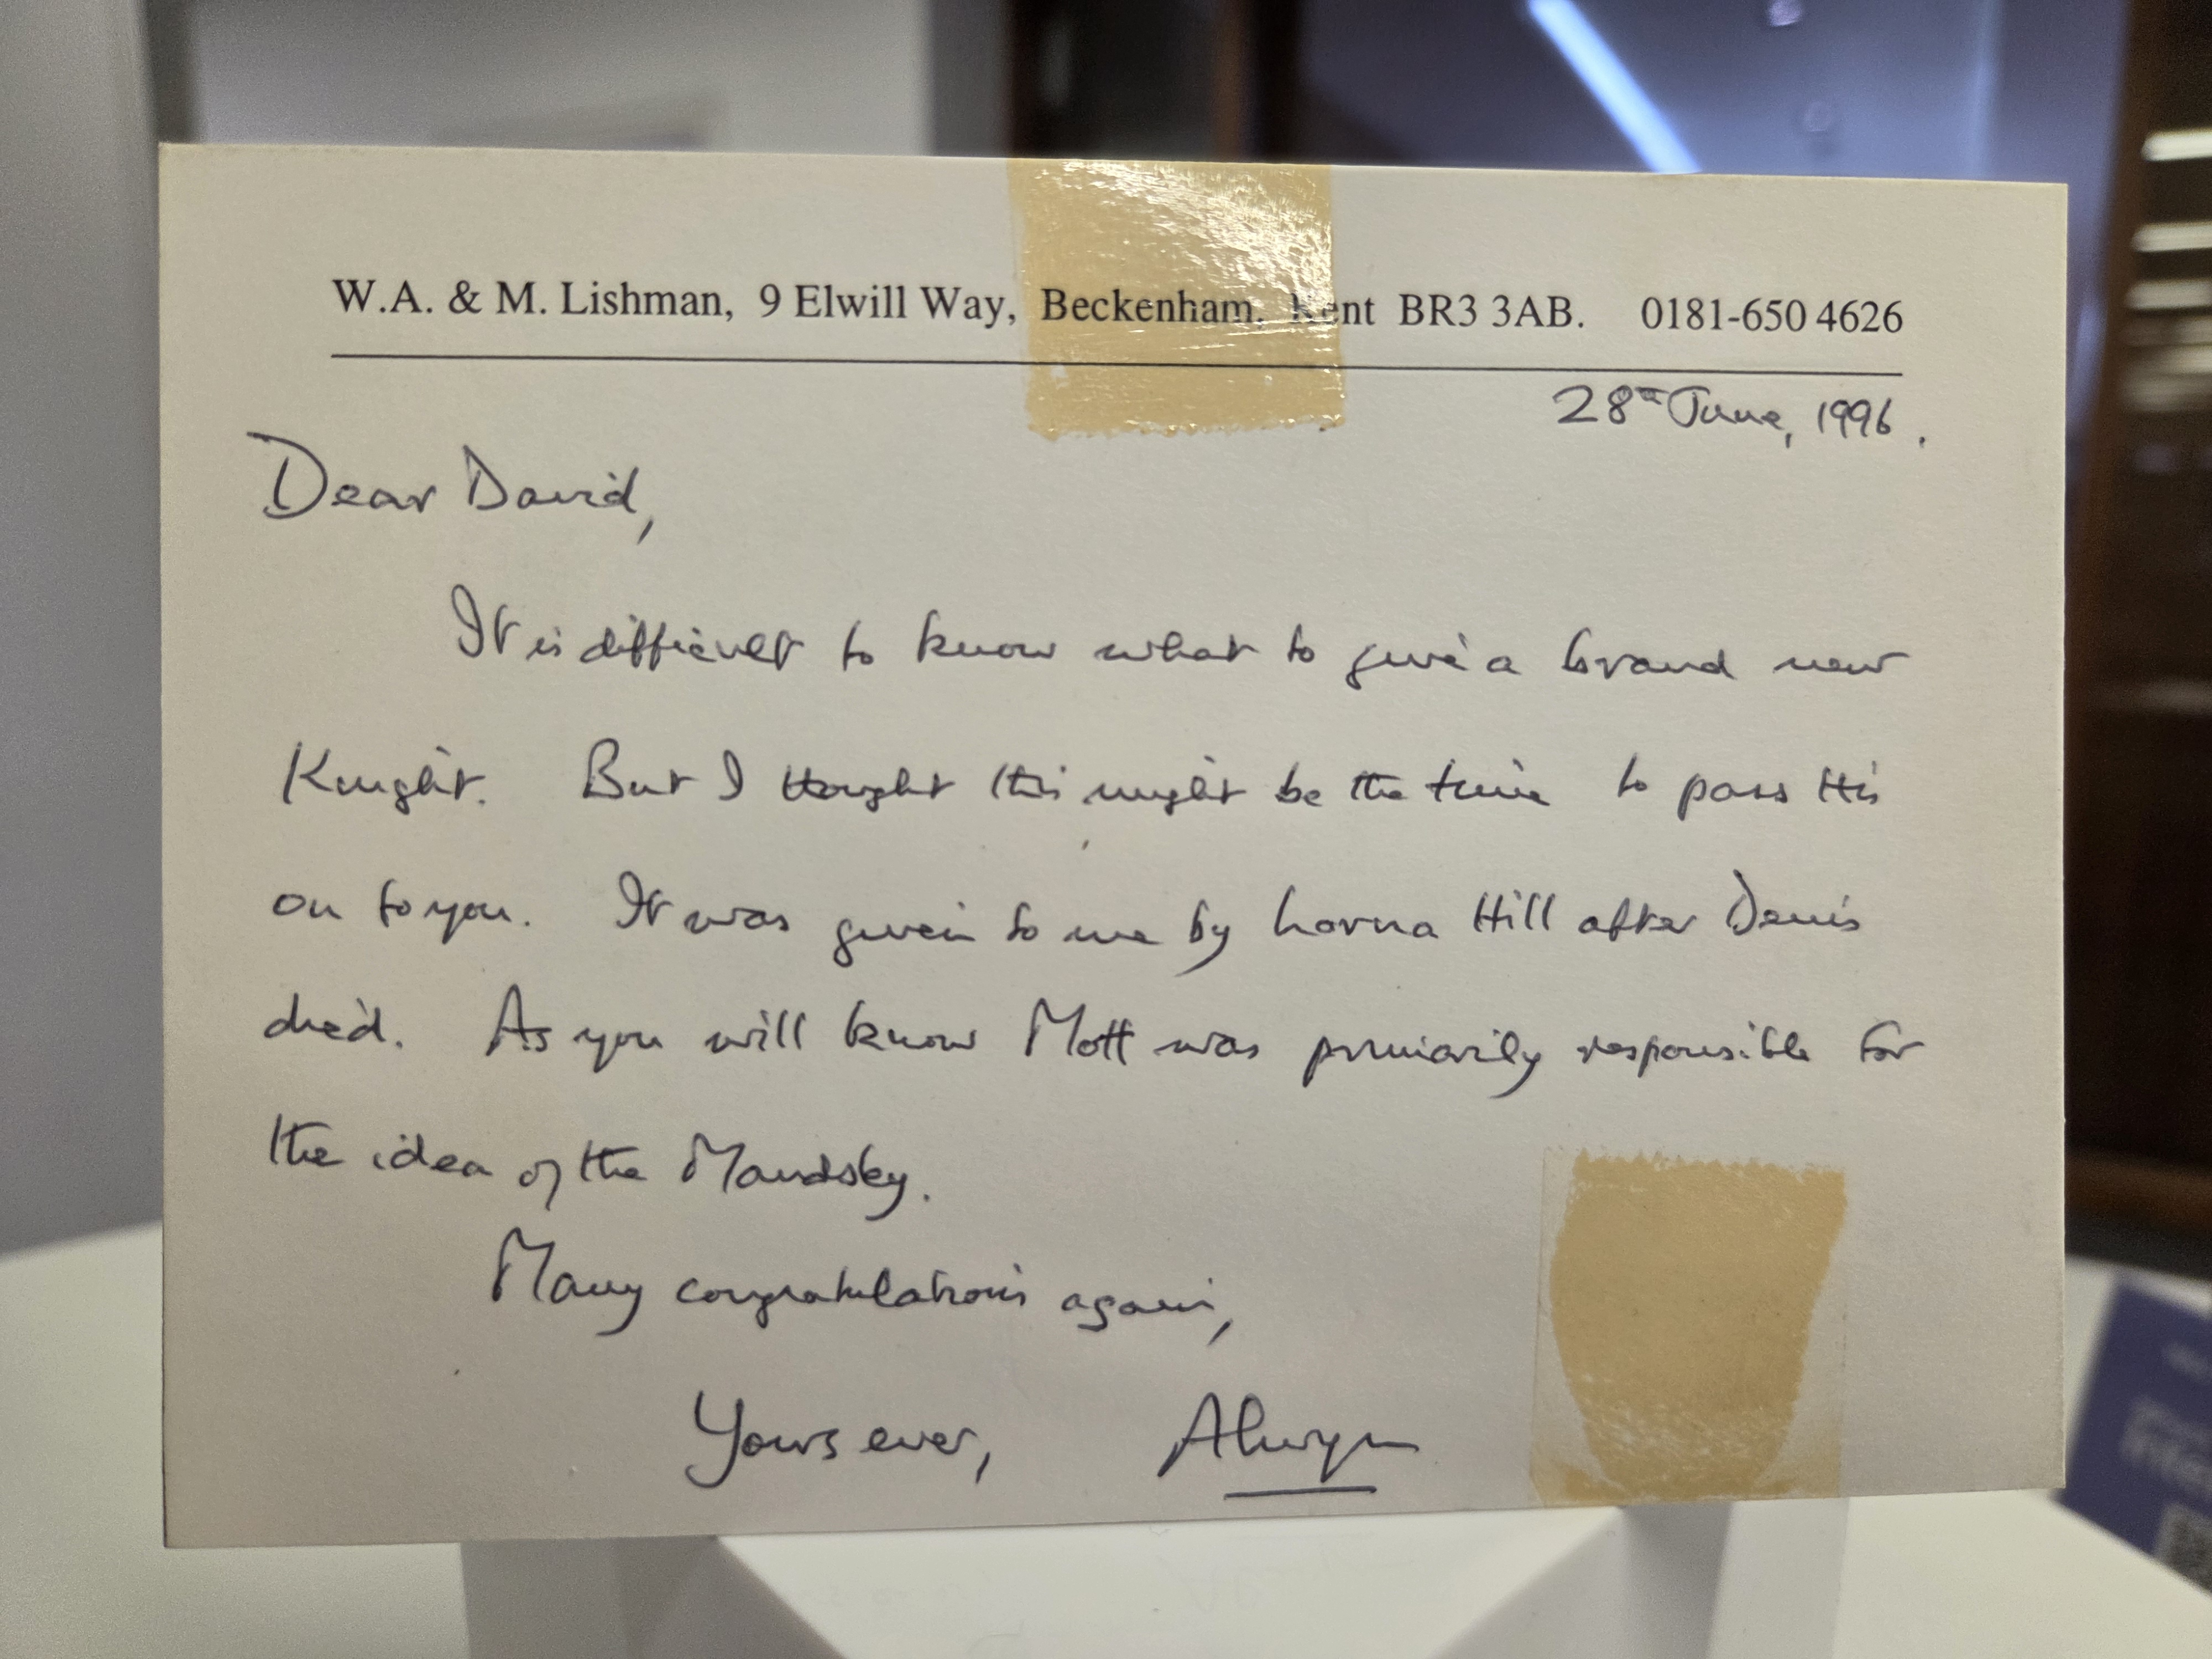 W.A. & M. Lishman, 9 Elwill Way, Beckenham, Kent BR3 3AB. 0181-650 4626
28th June, 1996.
Dear David,
It is difficult to know what to give a brand new
Knight. But I thought this might be the time to pass this
on to you. It was given to me by Lorna Hill after Denis
died. As you will know Mott was primarily responsible for
the idea of the Maudsley.
Many congratulations again,
Yours ever, Alwyn